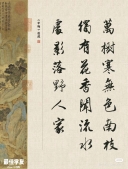 萬樹寒無色南枝
獨有花香聞流水
處影落野人家
《早梅》